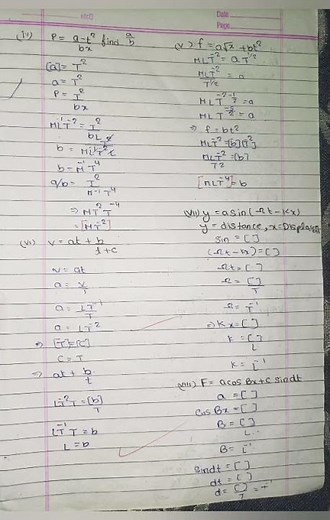 Date
Page
(iv) P = a-t² find a/b
bx
[a] = T²
a = T²
P = T²
bx
ML⁻¹T⁻² = T²
bL
b = M⁻¹T⁴
a/b = T²
M⁻¹T⁴
⇒ MT²T⁻⁴
= [MT⁻²]
(vi) v = at + b
t+c
v = at
a = v/t
a = LT⁻¹
T
a = LT⁻²
⇒ [T] = [C]
C = T
⇒ at + b
t
LT⁻²T = [b]
T
LT⁻¹T = b
L = b
(v) f = a√x + bt²
MLT⁻² = a
MLT⁻² = a
⇒ f = bt²
MLT⁻² = [b][T²]
MLT⁻² = [b]
T²
[MLT⁻⁴] = b
(vii) y = a sin(Ωt - Kx)
y = distance, x = Displa
sin = [ ]
(Ωt - Kx) = [ ]
Ωt = [ ]
Ω = [ ]
T
Ω = T⁻¹
⇒ Kx = [ ]
K = [ ]
L
K = L⁻¹
(viii) F = a cos Bx + C sin dt
a = [ ]
cos Bx = [ ]
B = [ ]
L
B = L⁻¹
sin dt = [ ]
dt = [ ]
d = [ ] = T⁻¹
T